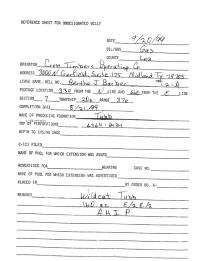 REFERENCE SHEET FOR UNDESIGNATED WELLS
DATE 9/20/99
OIL/GAS Gas
COUNTY Lea
OPERATOR Cross Timbers Operating Co
ADDRESS 3000 N Garfield, Suite 175 Midland Tx 79705
LEASE NAME, WELL NO. Bertha J Barber 12-A
FOOTAGE LOCATION 330 FROM THE N LINE AND FROM THE E LINE
SECTION 7 TOWNSHIP 20s RANGE 37e
COMPLETION DATE 8/21/99
NAME OF PRODUCING FORMATION Tubb
TOP OF PERFORATIONS
DEPTH TO CASING SHOE
C-123 FILED
NAME OF POOL FOR WHICH EXTENSION WAS ASKED
ADVERTISED FOR HEARING CASE NO.
NAME OF POOL FOR WHICH EXTENSION WAS ADVERTISED
PLACED IN BY ORDER NO. R-
REMARKS Wildcat Tubb
160 ac E/2 E/2
AHIP